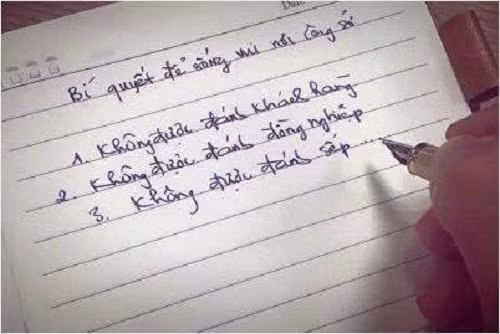 Bí quyết để sống vui nơi công sở
1. Không được đánh khách hàng
2. Không được đánh đồng nghiệp
3. Không được đánh sếp ...